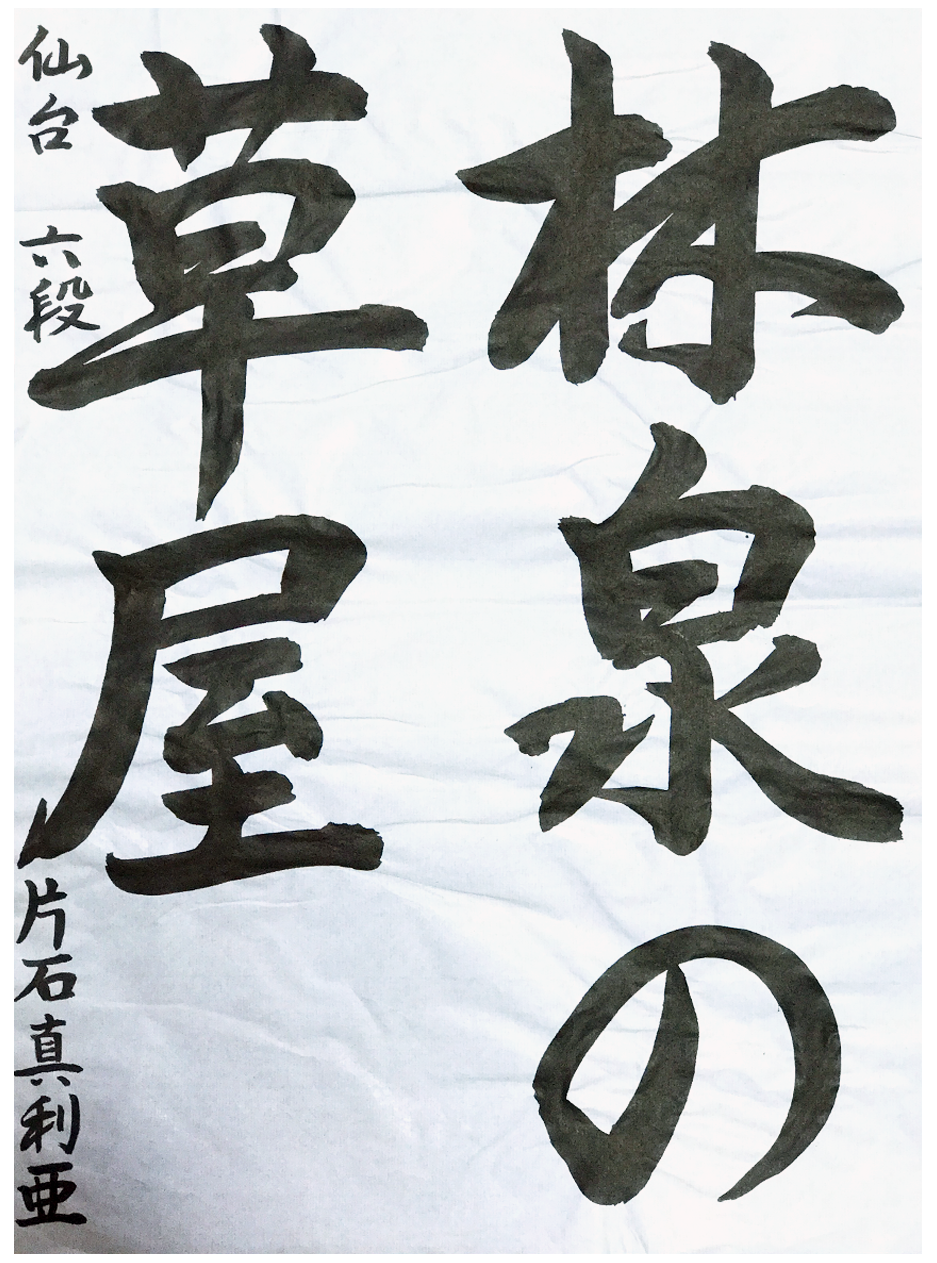 林泉の
草屋
仙台 六段 片石真利亜